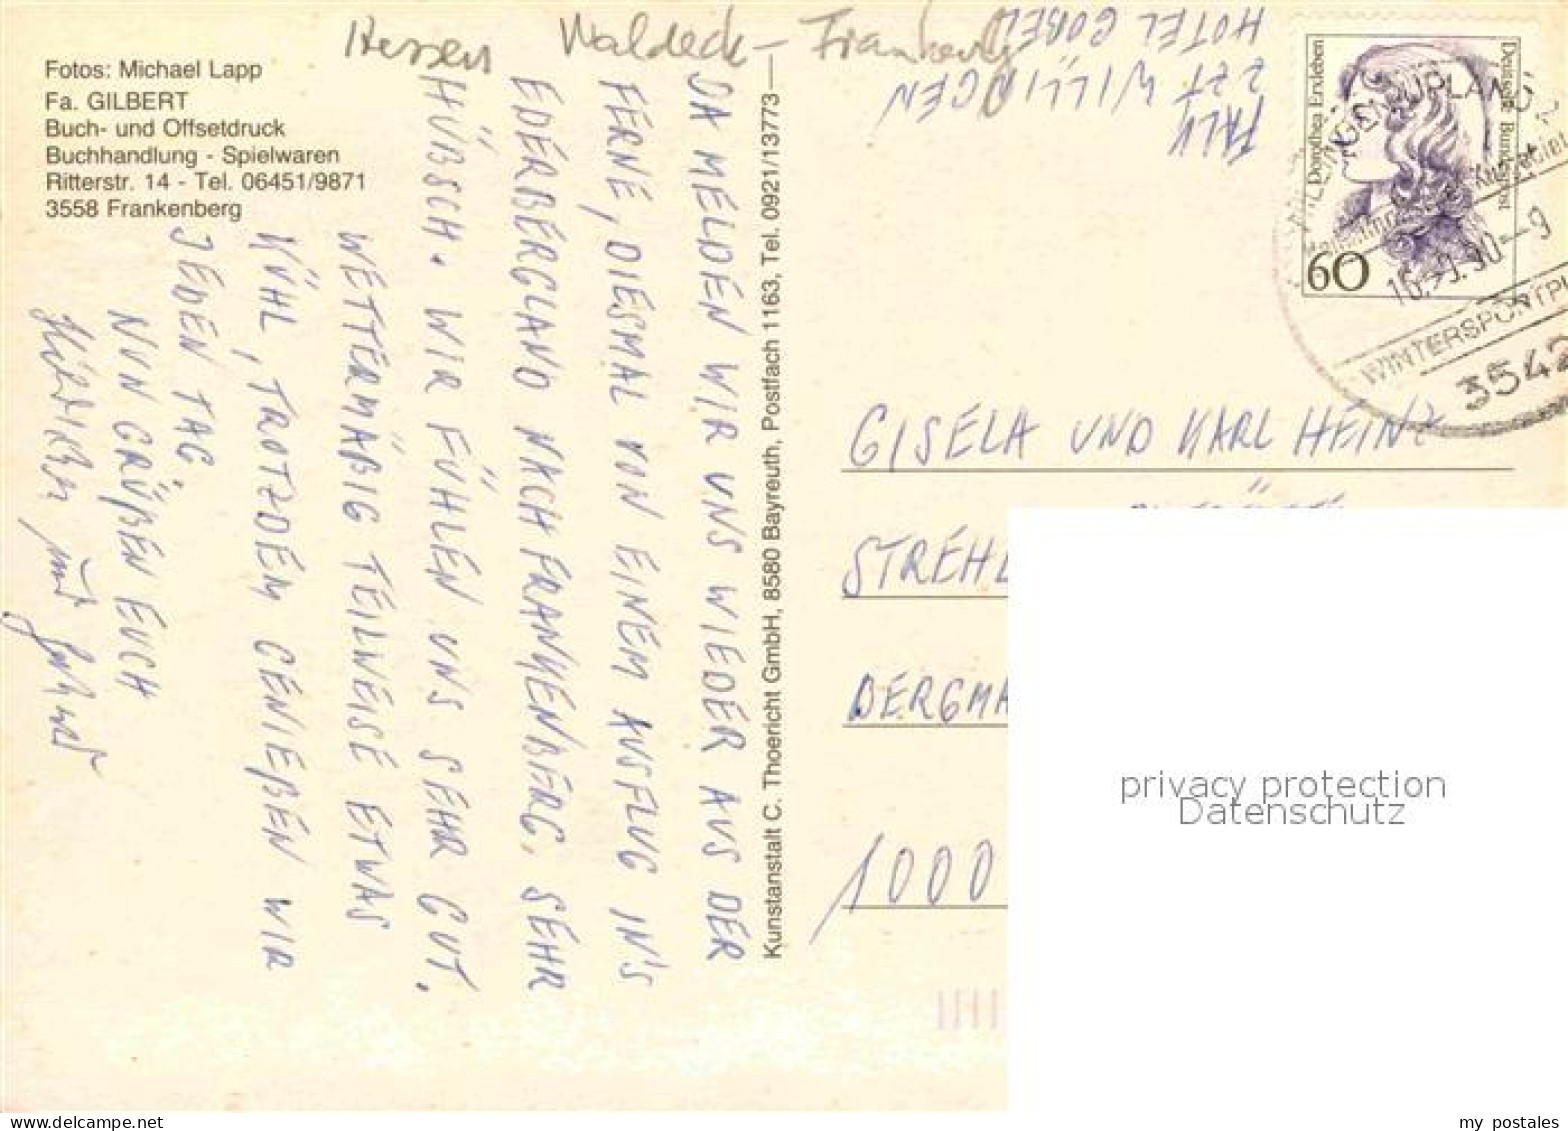 Hessen Waldeck-Frankenberg
Fotos: Michael Lapp
Fa. GILBERT
Buch- und Offsetdruck
Buchhandlung - Spielwaren
Ritterstr. 14 - Tel. 06451/9871
3558 Frankenberg
DA MELDEN WIR UNS WIEDER AUS DER
FERNE, DIESMAL VON EINEM AUSFLUG IN'S
EDERBERGLAND NACH FRANKENBERG. SEHR
HÜBSCH. WIR FÜHLEN UNS SEHR GUT.
WETTERMÄßIG TEILWEISE ETWAS
KÜHL, TROTZDEM GENIEßEN WIR
JEDEN TAG.
NUN GRÜßEN EUCH
und
Kunstanstalt C. Thoericht GmbH, 8580 Bayreuth, Postfach 1163, Tel. 0921/13773
FALK
ZZT WILLINGEN
HOTEL GÖBEL
Deutsche Bundespost
Dorothea Erxleben
60
UPLAND
16.-9.90--9
WINTERSPORTPL
3542
GISELA UND KARL HEINZ
STREHL
BERGMA
1000
privacy protection
Datenschutz
my postales